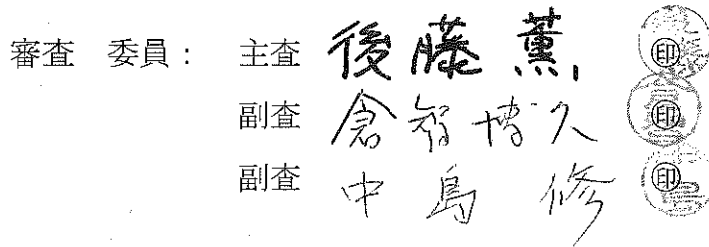 審査 委員： 主査 後藤 薫 ㊞
副査 倉智博久 ㊞
副査 中島 修 ㊞